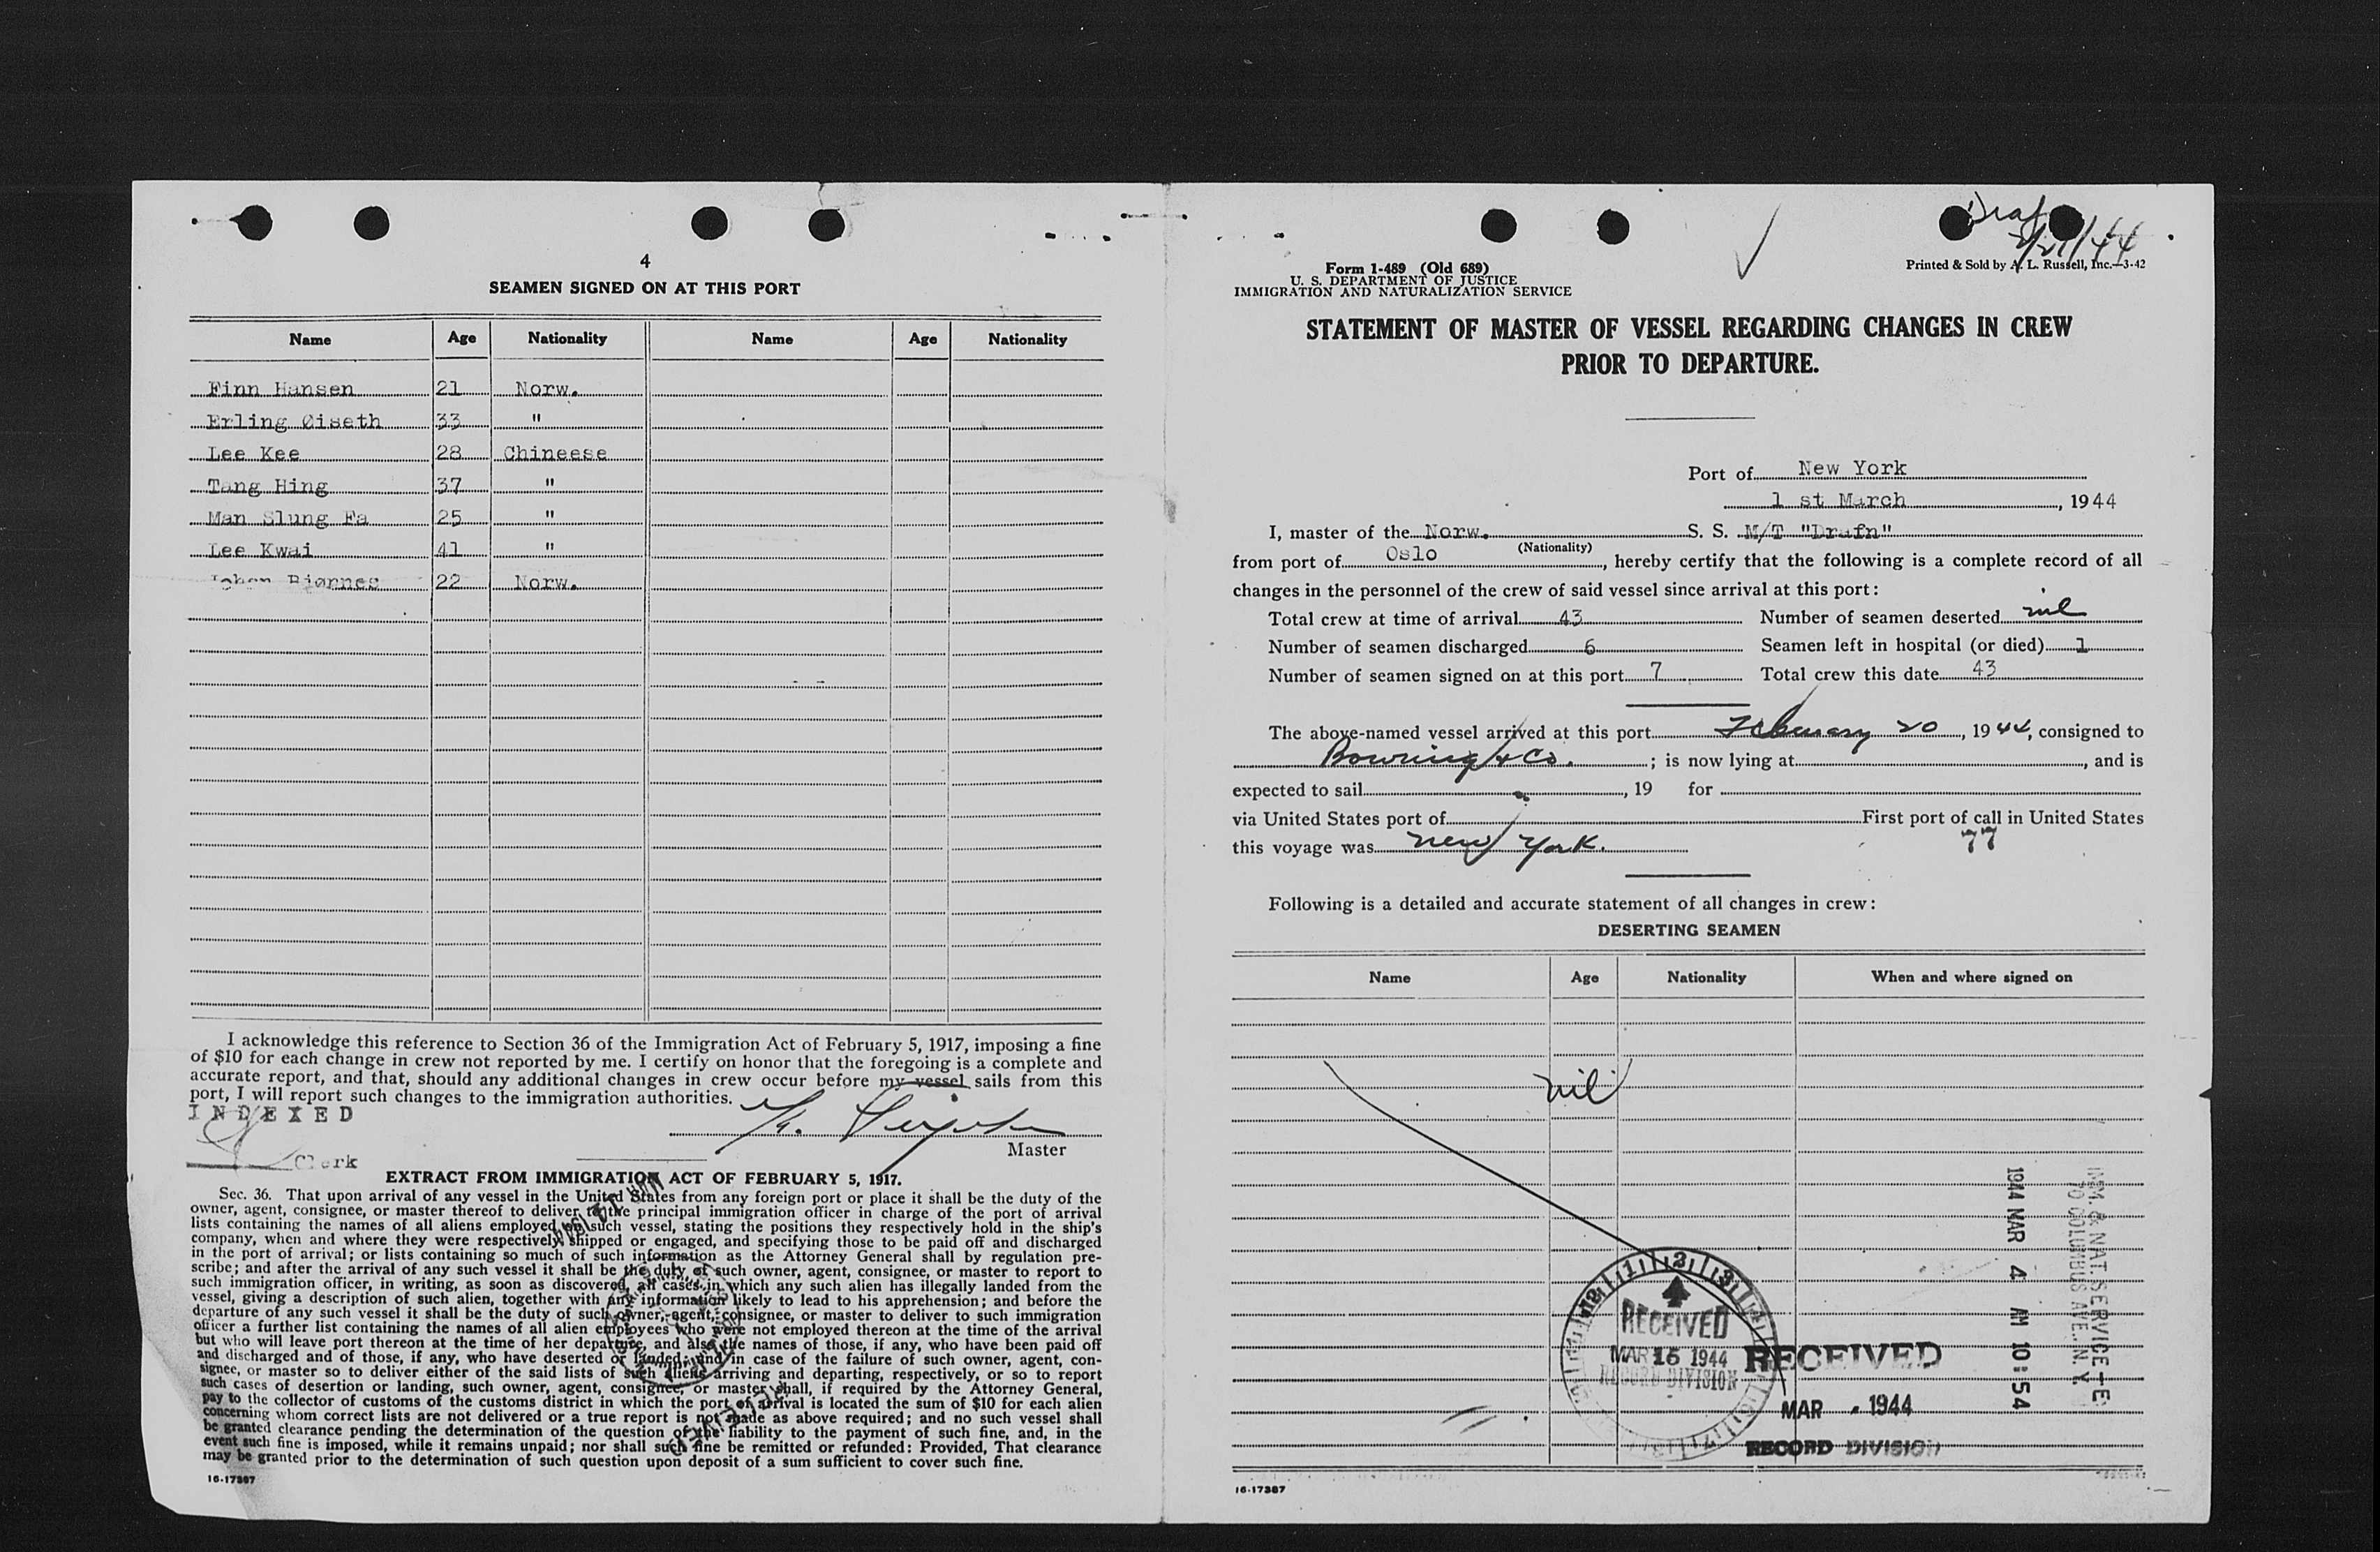 4
SEAMEN SIGNED ON AT THIS PORT
Name Age Nationality Name Age Nationality
Finn Hansen 21 Norw.
Erling Øiseth 33 "
Lee Kee 28 Chineese
Tang Hing 37 "
Man Slung Fa 25 "
Lee Kwai 41 "
Johan Bjørnes 22 Norw.
I acknowledge this reference to Section 36 of the Immigration Act of February 5, 1917, imposing a fine
of $10 for each change in crew not reported by me. I certify on honor that the foregoing is a complete and
accurate report, and that, should any additional changes in crew occur before my vessel sails from this
port, I will report such changes to the immigration authorities.
INDEXED
Master
Clerk
EXTRACT FROM IMMIGRATION ACT OF FEBRUARY 5, 1917.
Sec. 36. That upon arrival of any vessel in the United States from any foreign port or place it shall be the duty of the
owner, agent, consignee, or master thereof to deliver to the principal immigration officer in charge of the port of arrival
lists containing the names of all aliens employed on such vessel, stating the positions they respectively hold in the ship's
company, when and where they were respectively shipped or engaged, and specifying those to be paid off and discharged
in the port of arrival; or lists containing so much of such information as the Attorney General shall by regulation pre-
scribe; and after the arrival of any such vessel it shall be the duty of such owner, agent, consignee, or master to report to
such immigration officer, in writing, as soon as discovered, all cases in which any such alien has illegally landed from the
vessel, giving a description of such alien, together with any information likely to lead to his apprehension; and before the
departure of any such vessel it shall be the duty of such owner, agent, consignee, or master to deliver to such immigration
officer a further list containing the names of all alien employees who were not employed thereon at the time of the arrival
but who will leave port thereon at the time of her departure, and also the names of those, if any, who have been paid off
and discharged and of those, if any, who have deserted or landed; and in case of the failure of such owner, agent, con-
signee, or master so to deliver either of the said lists of such aliens arriving and departing, respectively, or so to report
such cases of desertion or landing, such owner, agent, consignee, or master shall, if required by the Attorney General,
pay to the collector of customs of the customs district in which the port of arrival is located the sum of $10 for each alien
concerning whom correct lists are not delivered or a true report is not made as above required; and no such vessel shall
be granted clearance pending the determination of the question of the liability to the payment of such fine, and, in the
event such fine is imposed, while it remains unpaid; nor shall such fine be remitted or refunded: Provided, That clearance
may be granted prior to the determination of such question upon deposit of a sum sufficient to cover such fine.
16-17387
RECEIVED
Form 1-489 (Old 689)
U. S. DEPARTMENT OF JUSTICE
IMMIGRATION AND NATURALIZATION SERVICE
Printed & Sold by A. L. Russell, Inc.—3-42
STATEMENT OF MASTER OF VESSEL REGARDING CHANGES IN CREW
PRIOR TO DEPARTURE.
Port of New York
1 st March, 1944
I, master of the Norw. S. S. M/T "Drafn"
(Nationality)
from port of Oslo, hereby certify that the following is a complete record of all
changes in the personnel of the crew of said vessel since arrival at this port:
Total crew at time of arrival 43 Number of seamen deserted nil
Number of seamen discharged 6 Seamen left in hospital (or died) 1
Number of seamen signed on at this port 7 Total crew this date 43
The above-named vessel arrived at this port February 20, 1944, consigned to
Bowring & Co.; is now lying at, and is
expected to sail, 19 for
via United States port of First port of call in United States
this voyage was New York. 77
Following is a detailed and accurate statement of all changes in crew:
DESERTING SEAMEN
Name Age Nationality When and where signed on
nil
1944 MAR 4 AM 10:54
IMM. & NAT. SERVICE
70 COLUMBUS AVE., N. Y.
RECEIVED
MAR 16 1944
RECORD DIVISION
RECEIVED
MAR 1944
RECORD DIVISION
16-17387